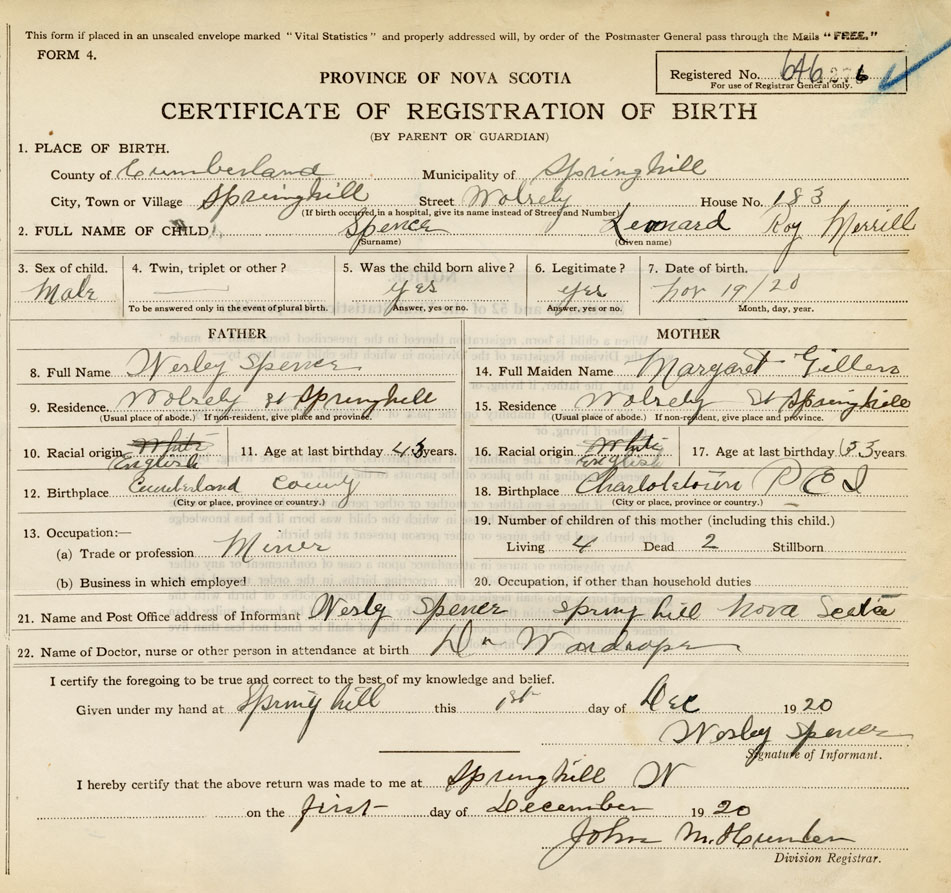 This form if placed in an unsealed envelope marked "Vital Statistics" and properly addressed will, by order of the Postmaster General pass through the Mails "FREE."
FORM 4.
PROVINCE OF NOVA SCOTIA
Registered No.
For use of Registrar General only.
CERTIFICATE OF REGISTRATION OF BIRTH
(BY PARENT OR GUARDIAN)
1. PLACE OF BIRTH.
County of Cumberland Municipality of Springhill
City, Town or Village Springhill Street Wolsely House No. 183
(If birth occurred in a hospital, give its name instead of Street and Number)
2. FULL NAME OF CHILD Spence Leonard Roy Merrill
(Surname) (Given name)
3. Sex of child. 4. Twin, triplet or other? 5. Was the child born alive? 6. Legitimate? 7. Date of birth.
Male yes yes Nov 19/20
To be answered only in the event of plural birth. Answer, yes or no. Answer, yes or no. Month, day, year.
FATHER MOTHER
8. Full Name Wesley Spence 14. Full Maiden Name Margaret Gillen
9. Residence Wolsely St Springhill 15. Residence Wolsely St Springhill
(Usual place of abode.) If non-resident, give place and province. (Usual place of abode.) If non-resident, give place and province.
10. Racial origin White 11. Age at last birthday 43 years. 16. Racial origin White 17. Age at last birthday 33 years
English English
12. Birthplace Cumberland County 18. Birthplace Charlotetown P E I
(City or place, province or country.) (City or place, province or country.)
13. Occupation:— 19. Number of children of this mother (including this child.)
(a) Trade or profession Miner Living 4 Dead 2 Stillborn
(b) Business in which employed 20. Occupation, if other than household duties
21. Name and Post Office address of Informant Wesley Spence Spring hill Nova Scotia
22. Name of Doctor, nurse or other person in attendance at birth Dr Wardroper
I certify the foregoing to be true and correct to the best of my knowledge and belief.
Given under my hand at Spring hill this 1st day of Dec 1920
Wesley Spence
Signature of Informant.
I hereby certify that the above return was made to me at Springhill N
on the first day of December 1920
John M. Hunter
Division Registrar.